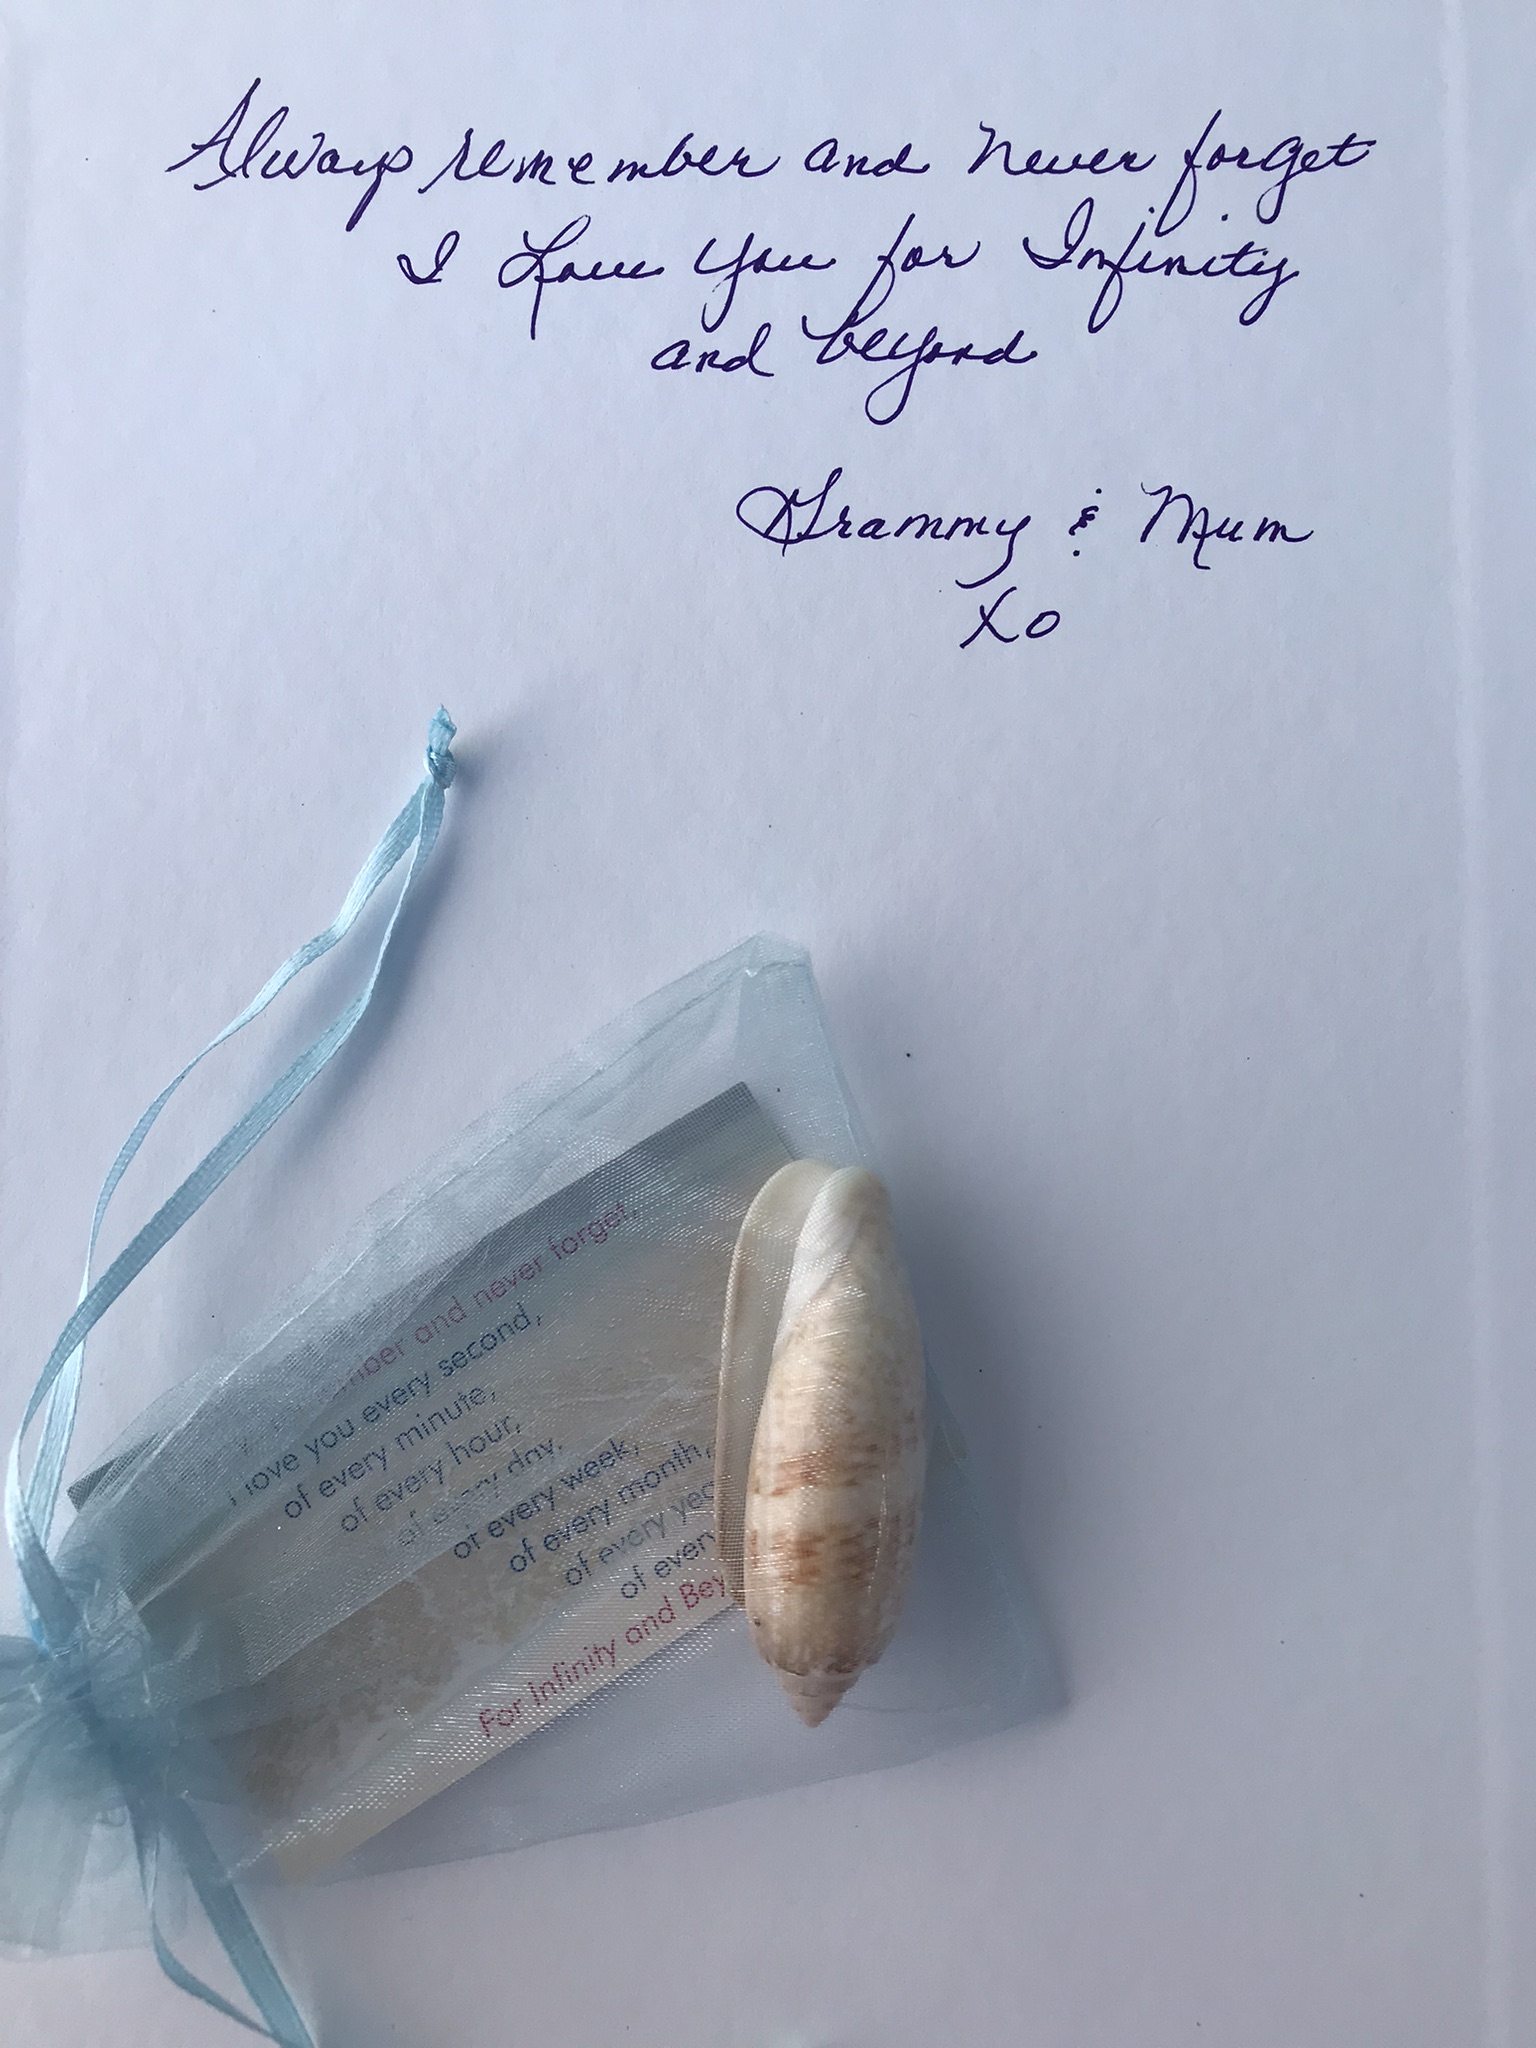 Always remember and never forget
I Love You for Infinity
and beyond
Grammy & Mum
XO
and never forget,
I love you every second,
of every minute,
of every hour,
of every day,
of every week,
of every month,
of every
of every
For Infinity and